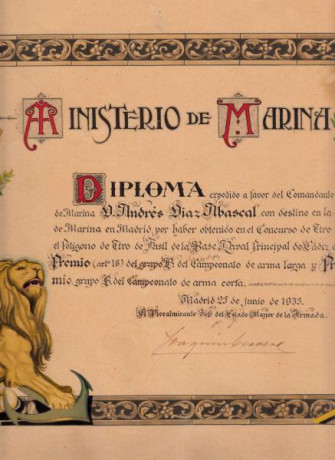 MINISTERIO DE MARINA
DIPLOMA expedido a favor del Comandante
de Marina D. Andrés Diaz Abascal con destino en la
de Marina en Madrid por haber obtenido en el Concurso de Tiro
el polígono de Tiro de Fusil de la Base Naval principal de Cádiz
Premio (artº 16) del grupo del Campeonato de arma larga y
mio grupo del Campeonato de arma corta.
Madrid 25 de junio de 1935.
El Vicealmirante Jefe del Estado Mayor de la Armada.